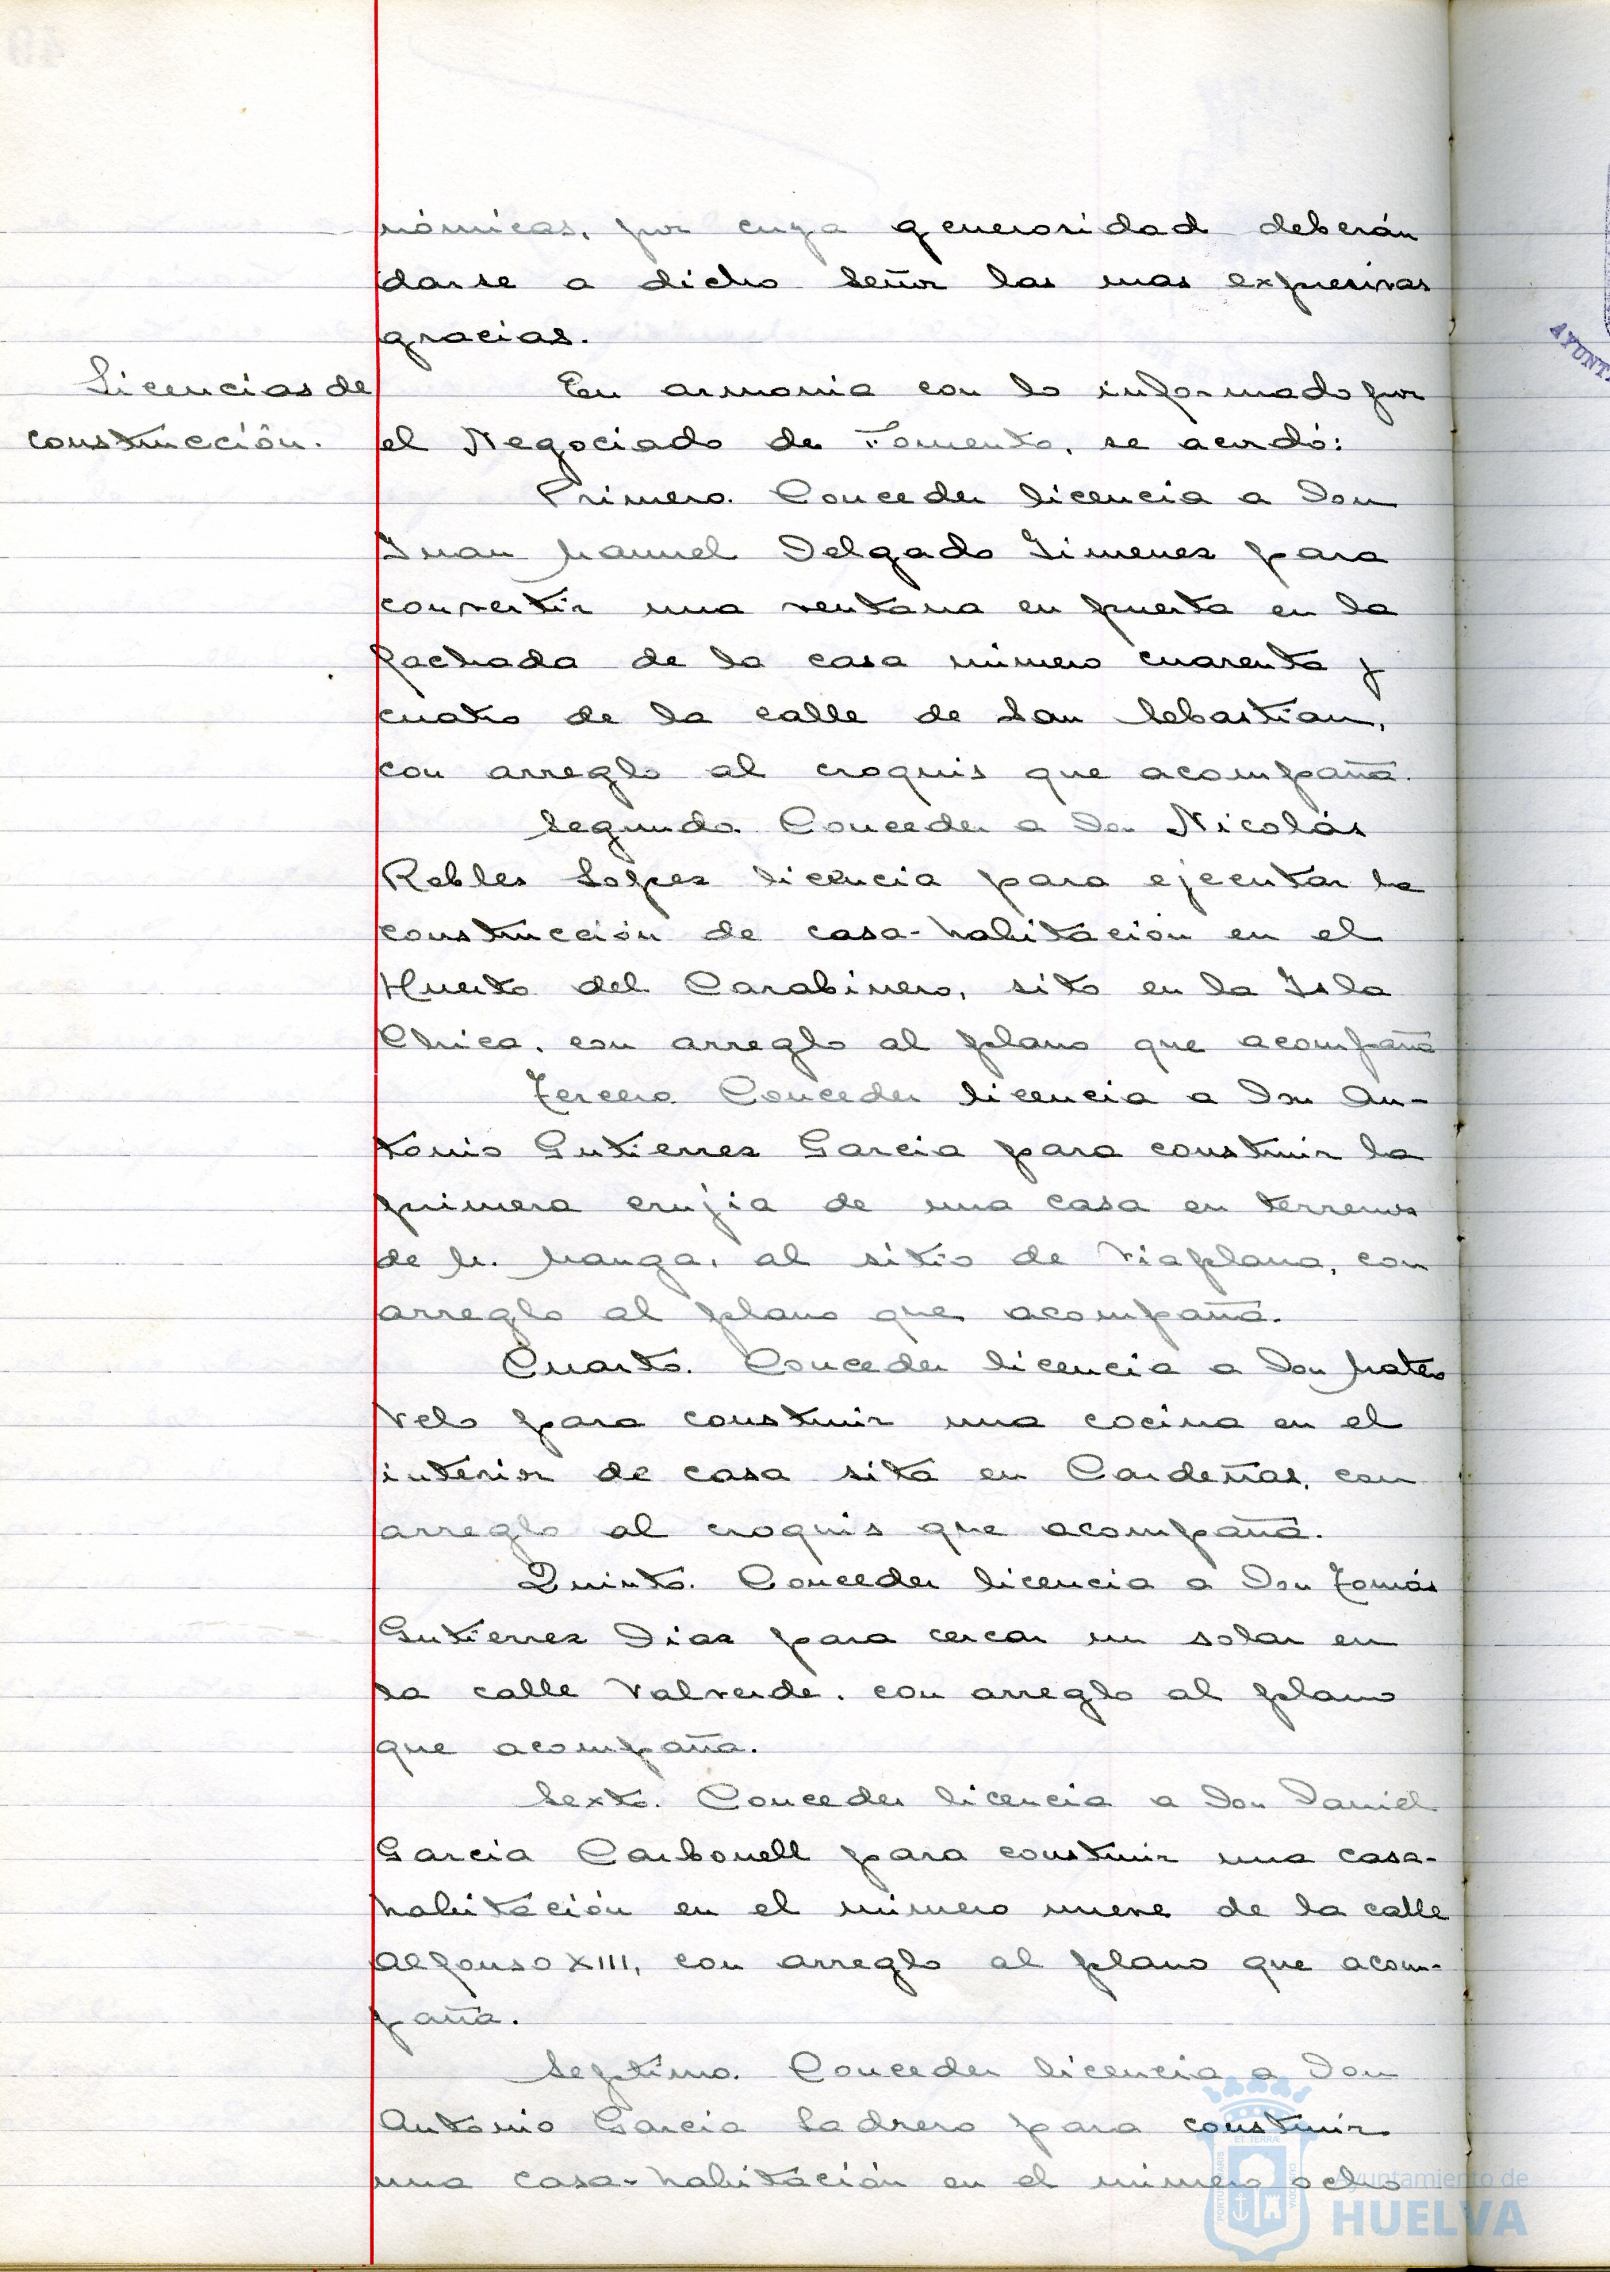 nómicas, por cuya generosidad deberán
darse a dicho Señor las mas expresivas
gracias.
Licencias de
construcción.
En armonia con lo informado por
el Negociado de Fomento, se acordó:
Primero. Conceder licencia a Don
Juan Manuel Delgado Jimenez para
convertir una ventana en puerta en la
fachada de la casa número cuarenta y
cuatro de la calle de San Sebastian,
con arreglo al croquis que acompaña.
Segundo. Conceder a Don Nicolás
Robles Lopez licencia para ejecutar la
construcción de casa-habitación en el
Huerto del Carabinero, sito en la Isla
Chica, con arreglo al plano que acompaña
Tercero. Conceder licencia a Don An-
tonio Gutierrez Garcia para construir la
primera crujia de una casa en terrenos
de M. Manga, al sitio de Viaplana, con
arreglo al plano que acompaña.
Cuarto. Conceder licencia a Don Mateo
Velo para construir una cocina en el
interior de casa sita en Cardeñas, con
arreglo al croquis que acompaña.
Quinto. Conceder licencia a Don Tomás
Gutierrez Diaz para cercar un solar en
la calle Valverde, con arreglo al plano
que acompaña.
Sexto. Conceder licencia a Don Daniel
Garcia Carbonell para construir una casa-
habitación en el número nueve de la calle
Alfonso XIII, con arreglo al plano que acom-
paña.
Septimo. Conceder licencia a Don
Antonio Garcia Ladrero para construir
una casa-habitación en el número ocho
Ayuntamiento de
HUELVA
AYUNT